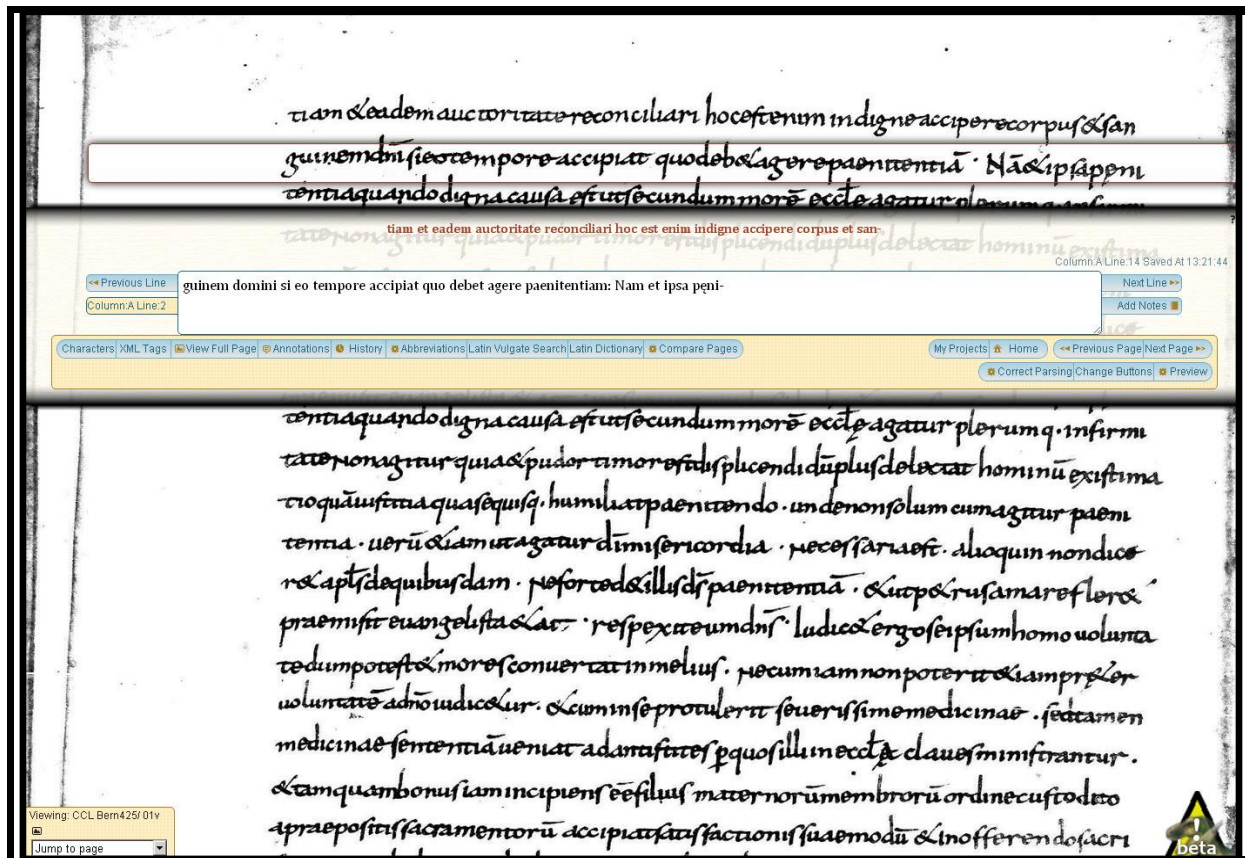 tiam & eadem auctoritate reconciliari hoc est enim indigne accipere corpus & san
guinem dn̄i si eo tempore accipiat quo deb& agere paenitentiā · Nā & ipsa pęni
tentia quando digna causa est ut secundum morē eccl̄ę agatur plerumq· infirmi
tiam et eadem auctoritate reconciliari hoc est enim indigne accipere corpus et san-
Column:A Line:14 Saved At 13:21:44
◄◄ Previous Line
guinem domini si eo tempore accipiat quo debet agere paenitentiam: Nam et ipsa pęni-
Next Line ►►
Column:A Line:2
Add Notes
Characters XML Tags View Full Page Annotations History Abbreviations Latin Vulgate Search Latin Dictionary Compare Pages
My Projects Home ◄◄ Previous Page Next Page ►►
Correct Parsing Change Buttons Preview
tentia quando digna causa est ut secundum morē eccl̄ę agatur plerumq· infirmi
tate non agitur quia & pudor timor est displicendi dū plus delectat hominū existima
tio quā iustitia qua se quisq· humiliat paenitendo · unde non solum cum agitur paeni
tentia · uerū &iam ut agatur dī misericordia · necessaria est · alioquin non dice
r& apl̄s de quibusdam · ne forte d& illis dS̄ paenitentiā · & ut p&rus amare fler&
praemisit euangelista & ait · respexit eum dn̄s · Iudic& ergo se ipsum homo uolunta
te dum potest & mores conuertat in melius · ne cum iam non poterit &iam pr&er
uoluntatē a dn̄o iudic&ur · & cum in se protulerit seuerissime medicinae · sed tamen
medicinae sententiā ueniat ad antistites p̱ quos illi in eccl̄a claues ministrantur ·
& tamquam bonus iam incipiens eē filius maternorū membrorū ordine custodito
a praepositis sacramentorū accipiat satisfactionis suae modū & in offerendo sacri
Viewing: CCL Bern425/ 01v
Jump to page
beta